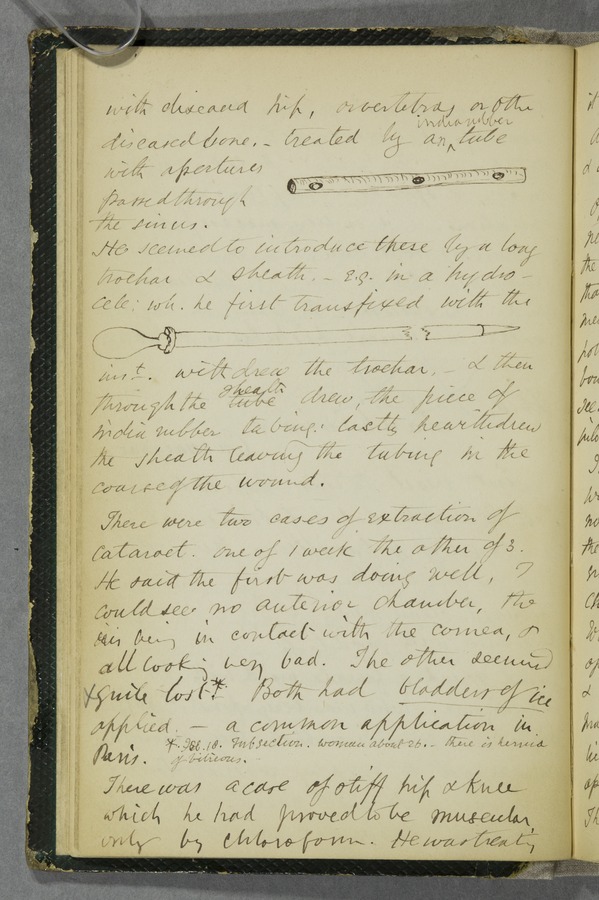 with diseased hip, or vertebras, or other
diseased bone. - treated by an indiarubber tube
with apertures
passed through
the sinus.
He seemed to introduce these by a long
trochar & sheath. - e.g. in a hydro-
cele: wh. he first transfixed with the
inst. withdrew the trochar, - & then
through the tube sheath drew, the piece of
india rubber tubing: lastly he withdrew
the sheath leaving the tubing in the
course of the wound.
There were two cases of extraction of
cataract. one of 1 week the other of 3.
He said the first was doing well, I
could see no anterior chamber, the
iris being in contact with the cornea, &
all looking very bad. The other seemed
quite lost.* Both had bladders of ice
applied. - a common application in
Paris.
* Feb. 18. woman about 26. - there is hernia
of vitreous. -
There was a case of stiff hip & knee
which he had proved to be muscular
only by chloroform. He was treating